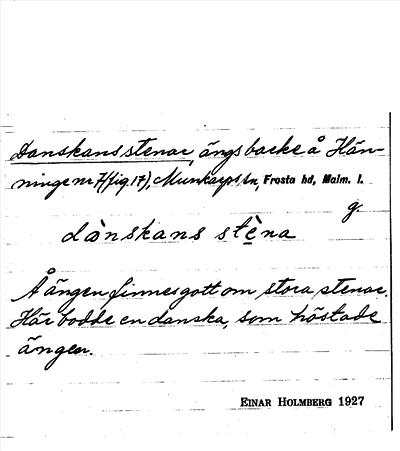 Danskans stenar, ängsbacke å Hän-
ninge nr 7 (fig 17), Munkarps sn, Frosta hd, Malm. l.
g.
dànskans stèna
Å ängen finnes gott om stora stenar.
Här bodde en danska, som höstade
ängen.
EINAR HOLMBERG 1927